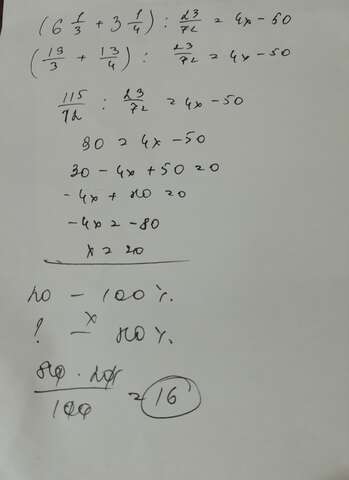 (6 1/3 + 3 1/4) : 23/72 = 4x - 50
(19/3 + 13/4) : 23/72 = 4x - 50
115/12 : 23/72 = 4x - 50
30 = 4x - 50
30 - 4x + 50 = 0
-4x + 80 = 0
-4x = -80
x = 20
20 - 100%.
? -x 80%.
80 · 20/100 = 16